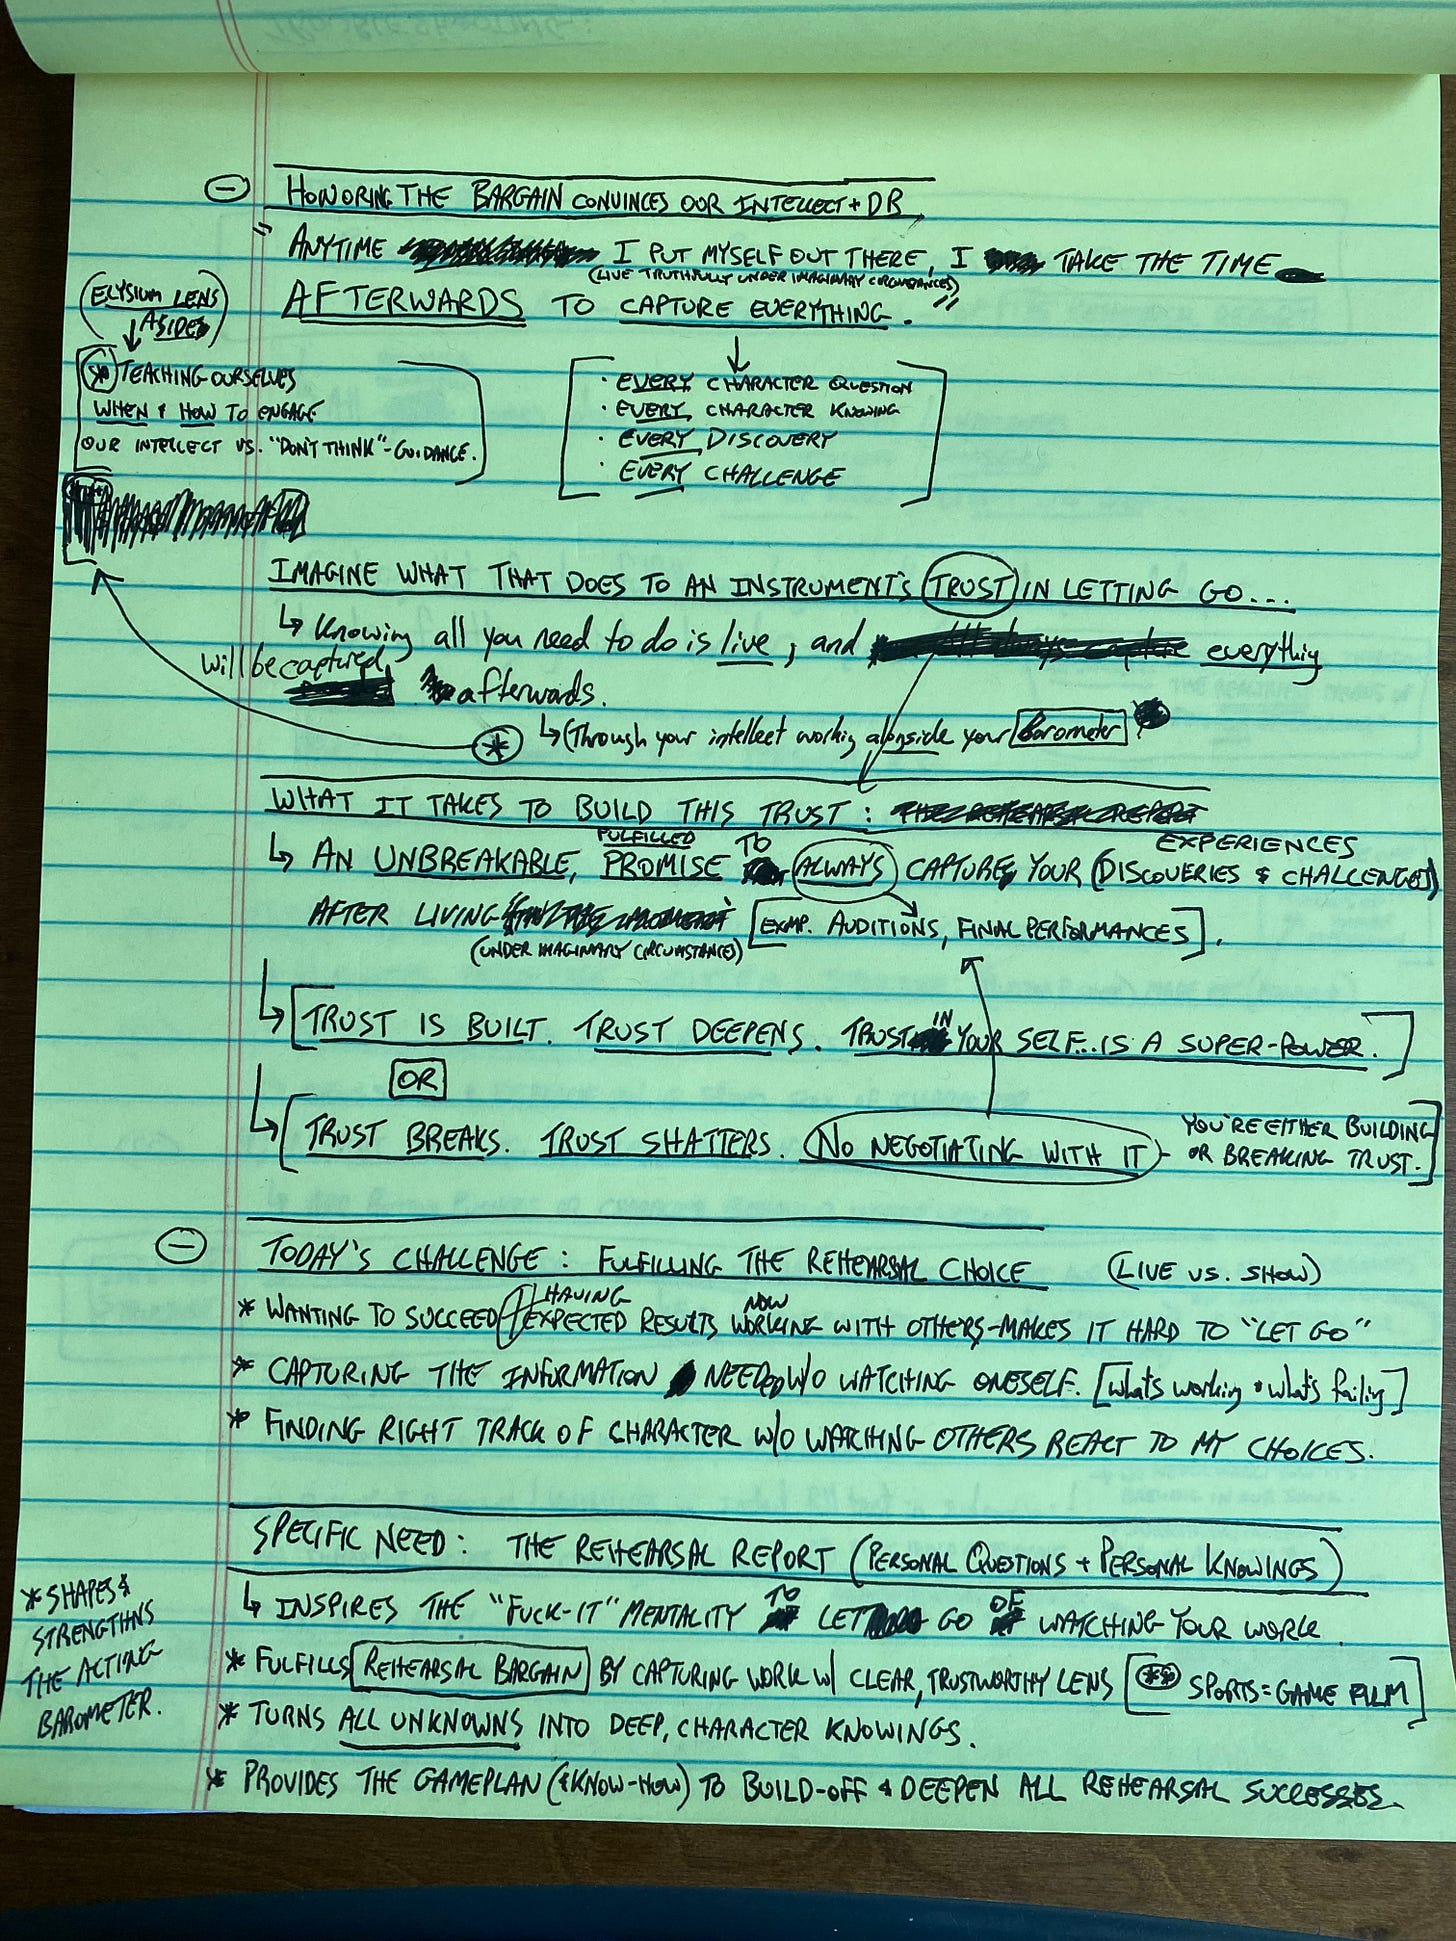 HONORING THE BARGAIN CONVINCES OUR INTELLECT + DR
"ANYTIME I PUT MYSELF OUT THERE, I TAKE THE TIME
(LIVE TRUTHFULLY UNDER IMAGINARY CIRCUMSTANCES)
AFTERWARDS TO CAPTURE EVERYTHING."
(ELYSIUM LENS
ASIDE)
* TEACHING OURSELVES
WHEN & HOW TO ENGAGE
OUR INTELLECT VS. "DON'T THINK"-GUIDANCE.
· EVERY CHARACTER QUESTION
· EVERY CHARACTER KNOWING
· EVERY DISCOVERY
· EVERY CHALLENGE
IMAGINE WHAT THAT DOES TO AN INSTRUMENT'S TRUST IN LETTING GO...
↳ Knowing all you need to do is live, and everything
will be captured afterwards.
* ↳ (Through your intellect working alongside your Barometer
WHAT IT TAKES TO BUILD THIS TRUST:
↳ AN UNBREAKABLE, FULFILLED PROMISE TO ALWAYS CAPTURE YOUR EXPERIENCES (DISCOVERIES & CHALLENGES)
AFTER LIVING (UNDER IMAGINARY CIRCUMSTANCES) [EXMP. AUDITIONS, FINAL PERFORMANCES].
↳ [TRUST IS BUILT. TRUST DEEPENS. TRUST IN YOUR SELF...IS A SUPER-POWER.]
OR
↳ [TRUST BREAKS. TRUST SHATTERS. NO NEGOTIATING WITH IT - YOU'RE EITHER BUILDING
OR BREAKING TRUST.]
TODAY'S CHALLENGE: FULFILLING THE REHEARSAL CHOICE (LIVE VS. SHOW)
* WANTING TO SUCCEED + HAVING EXPECTED RESULTS NOW WORKING WITH OTHERS-MAKES IT HARD TO "LET GO"
* CAPTURING THE INFORMATION NEEDED W/O WATCHING ONESELF. [what's working & what's failing]
* FINDING RIGHT TRACK OF CHARACTER W/O WATCHING OTHERS REACT TO MY CHOICES.
SPECIFIC NEED: THE REHEARSAL REPORT (PERSONAL QUESTIONS + PERSONAL KNOWINGS)
↳ INSPIRES THE "FUCK-IT" MENTALITY TO LET GO OF WATCHING YOUR WORK
* SHAPES &
STRENGTHNS
THE ACTING
BAROMETER.
* FULFILLS REHEARSAL BARGAIN BY CAPTURING WORK W/ CLEAR, TRUSTWORTHY LENS [** SPORTS = GAME FILM]
* TURNS ALL UNKNOWNS INTO DEEP, CHARACTER KNOWINGS.
* PROVIDES THE GAMEPLAN (& KNOW-HOW) TO BUILD-OFF & DEEPEN ALL REHEARSAL SUCCESSES.